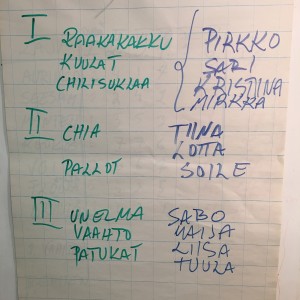 I
RAAKAKAKKU PIRKKO
KUULAT SARI
CHILISUKLAA KRISTIINA
MIRKKA
II
CHIA TIINA
LOTTA
PALLOT SOILE
III
UNELMA SABO
VAAHTO MAIJA
PATUKAT LIISA
TUULA